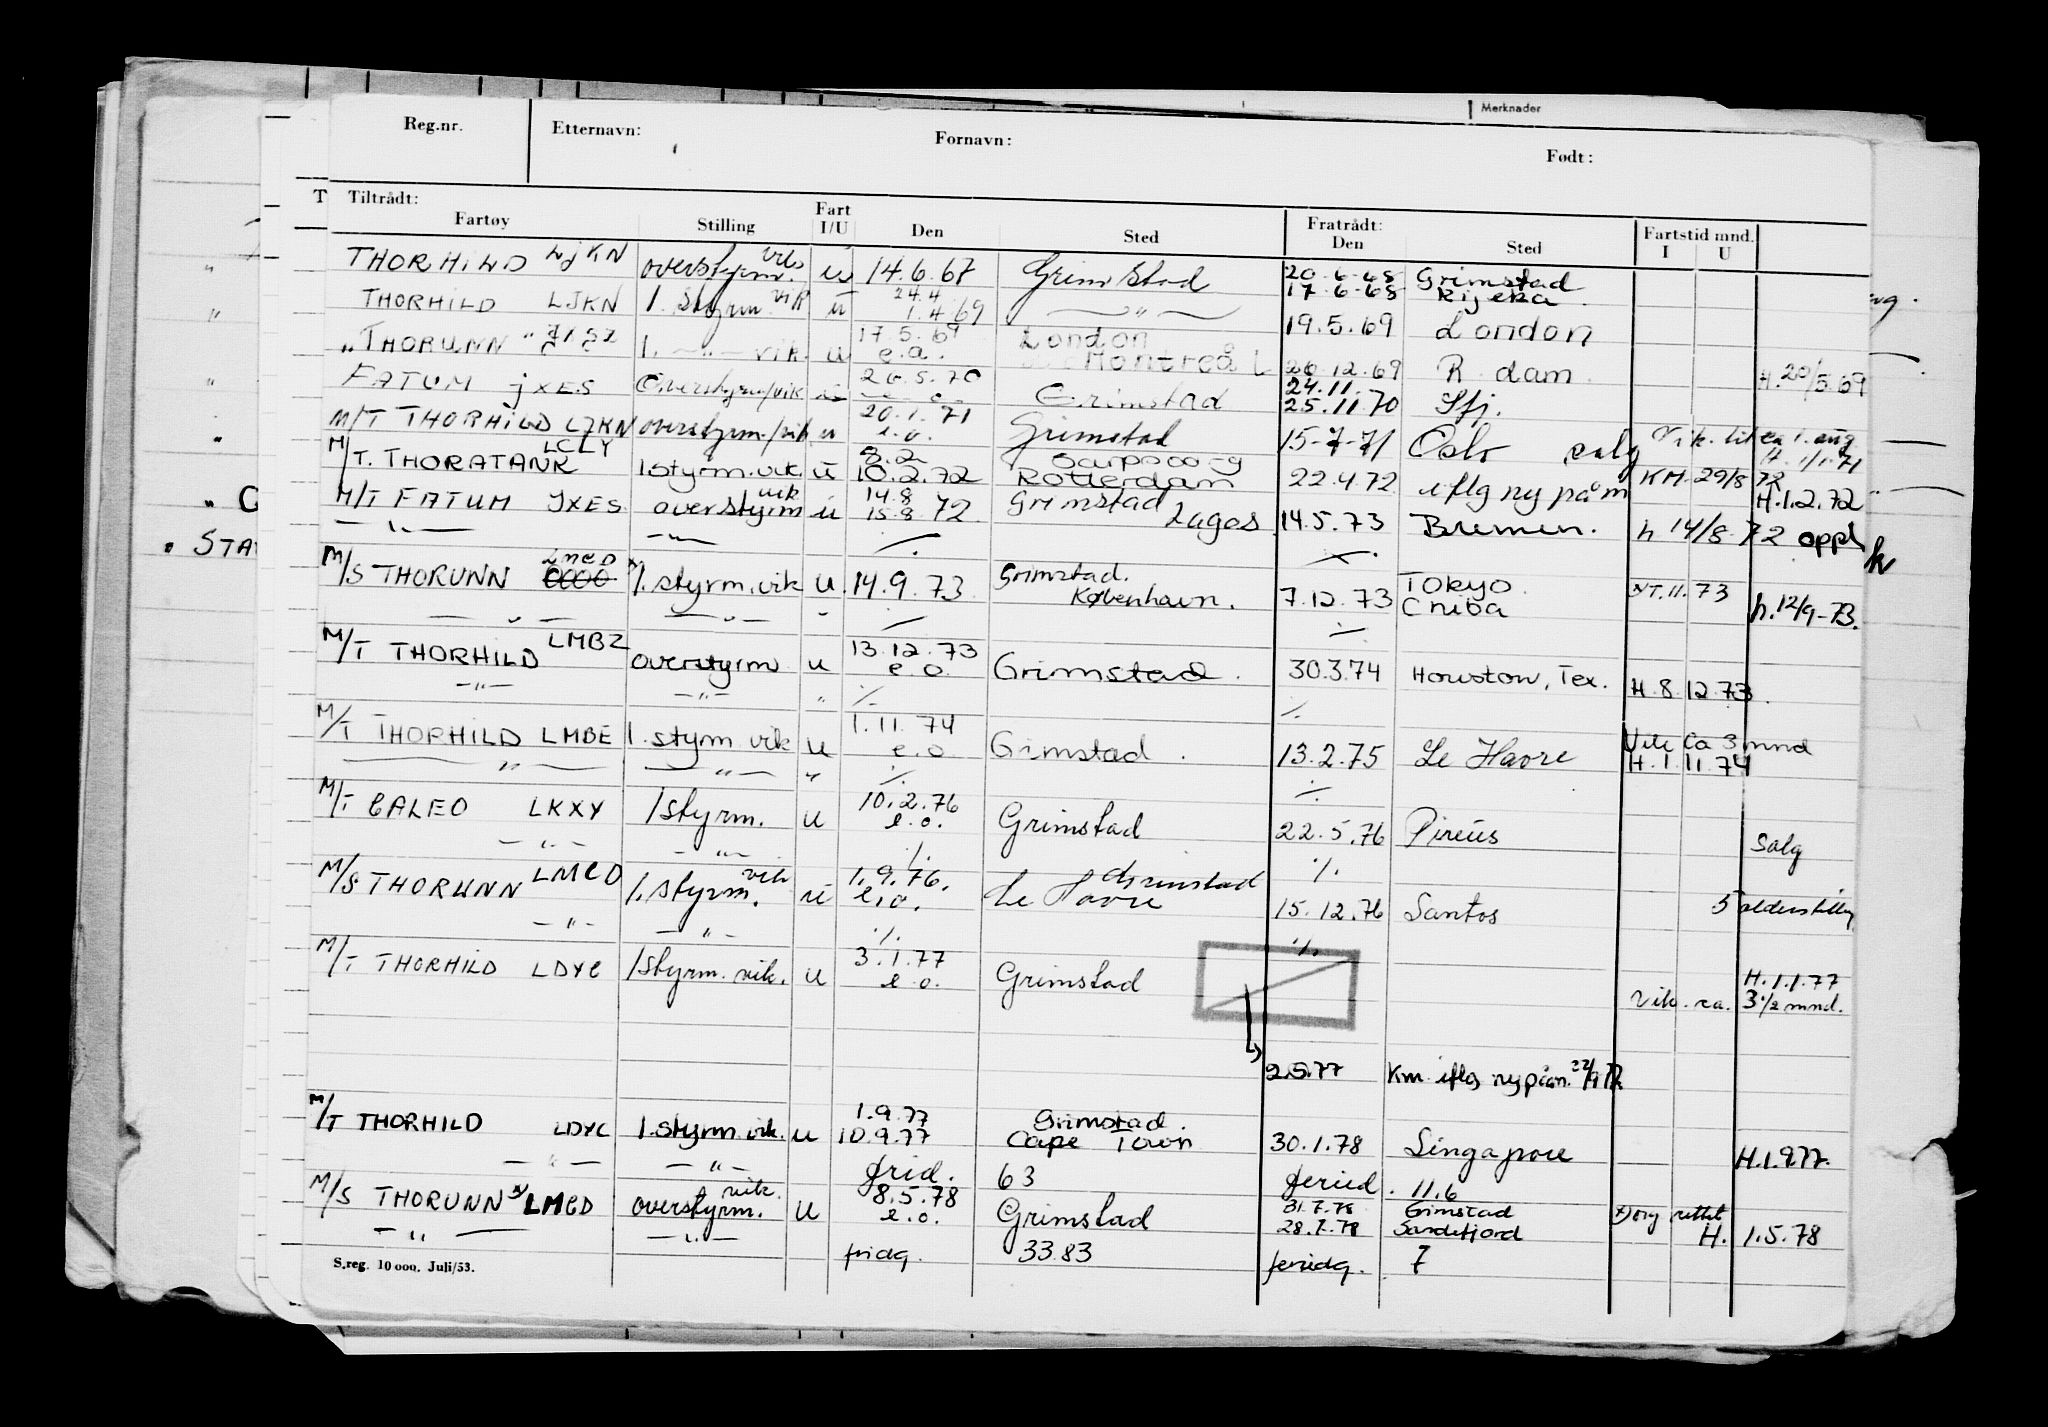 Merknader
Reg.nr.
Etternavn:
Fornavn:
Født:
T Tiltrådt:
Fartøy
Stilling
Fart I/U
Den
Sted
Fratrådt: Den
Sted
Fartstid mnd. I U
THORHILD LJKN overstyrm. u 14.6.67 Grimstad 20-6-68 Grimstad
17-6-68 Rijeka
THORHILD LJKN 1. styrm. vik u 24.4 1.4.69 — " — 19.5.69 London
"THORUNN 1. — " — vik. u 17.5.69 London
e.o. Montreal 26.12.69 R.dam H. 20/5.69
FATUM JXES Overstyrm/vik 26.5.70 Grimstad 24.11. 25.11.70 Sfj.
M/T THORHILD LJKN overstyrm./vik u 20.1.71 e.o. Grimstad 15-7-71 Oslo salg Vik. til ca 1. aug
H. 1/1.71
M/T. THORATANK LCLY 1.styrm.vik. u 8.2 10.2.72 Sarpsborg Rotterdam 22.4.72 iflg ny påm KM. 29/8 72
H.1.2.72
M/T FATUM JXES overstyrm vik u 14.8 15.8.72 Grimstad Lagos 14.5.73 Bremen. h 14/8 72 oppl
— " — — " — ./. ./.
M/S THORUNN LMCD 1.styrm.vik u. 14.9.73 Grimstad. København. 7.12.73 Tokyo. Chiba XT.11.73 h.12/9-73.
— " — — " — " ./. ./.
M/T THORHILD LMBZ overstyrm u 13.12.73 e.o. Grimstad. 30.3.74 Houston, Tex. H.8.12.73.
— " — — " — " ./. ./.
M/T THORHILD LMBE 1.styrm vik u 1.11.74 e.o. Grimstad. 13.2.75 Le Havre Vik Ca 3 mnd
H.1.11.74
— " — — " — " ./. ./.
M/T GALEO LKXY 1styrm. u 10.2.76 e.o. Grimstad 22.5.76 Pireus Salg
— " — — " — ./. ./.
M/S THORUNN LMCD 1.styrm. vik u 1.9.76. e.o. Grimstad Le Havre 15.12.76 Santos 5
— " — — " — ./. ./.
M/T THORHILD LDYC 1styrm. vik. u 3.1.77 e.o. Grimstad H.1.1.77
Vik. ca. 3½ mnd.
2.5.77 Km iflg ny påm. 22/9 77
M/T THORHILD LDYC 1.styrm.vik. u 1.9.77 10.9.77 Grimstad. Cape Town 30.1.78 Singapore H.1.9.77.
— " — — " — frid. 63 feried. 11.6
M/S THORUNN x) LMCD overstyrm. vik. u 8.5.78 e.o. Grimstad 31.7.78 Grimstad
28.7.78 Sandefjord x) org rettet H. 1.5.78
— " — — " — fridg. 33.83 feriedg. 7
S.reg. 10 000. Juli/53.
. STA